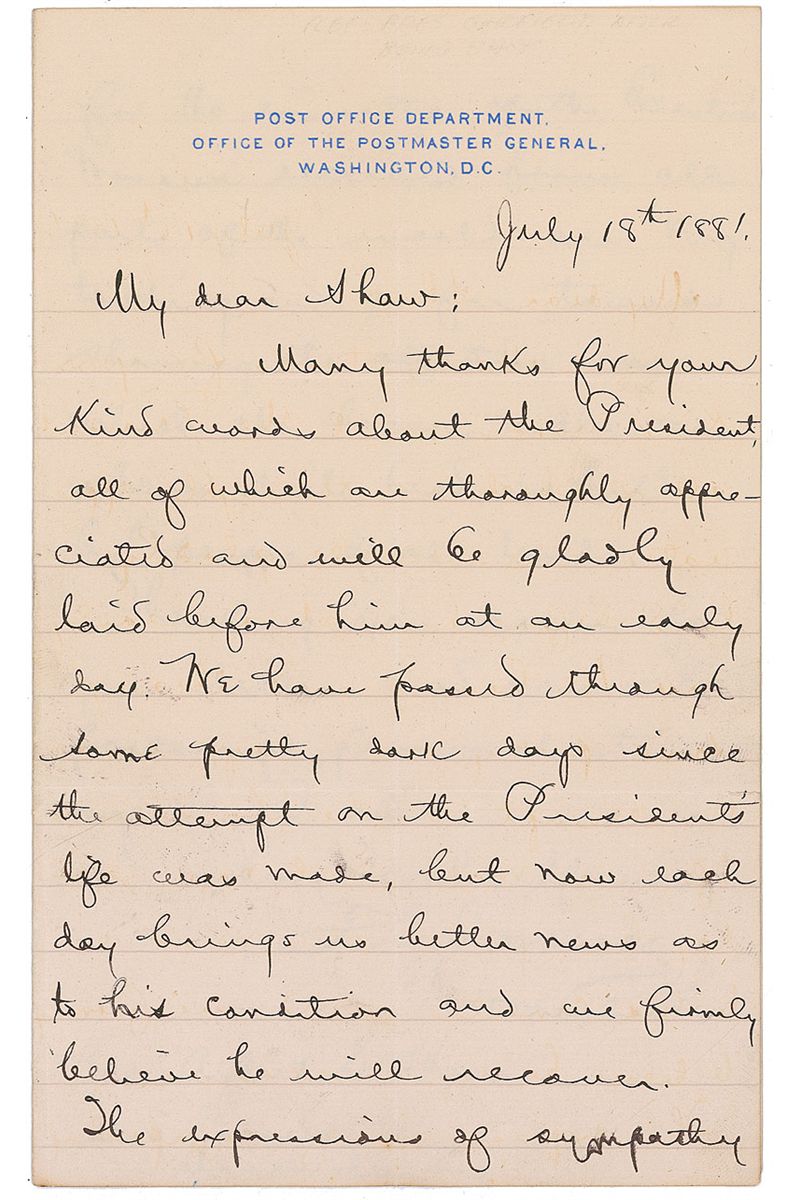 POST OFFICE DEPARTMENT,
OFFICE OF THE POSTMASTER GENERAL,
WASHINGTON, D.C.
July 18th 1881.
My dear Shaw:
Many thanks for your
kind words about the President,
all of which are thoroughly appre-
ciated and will be gladly
laid before him at an early
day. We have passed through
some pretty dark days since
the attempt on the President's
life was made, but now each
day brings us better news as
to his condition and we firmly
believe he will recover.
The expressions of sympathy